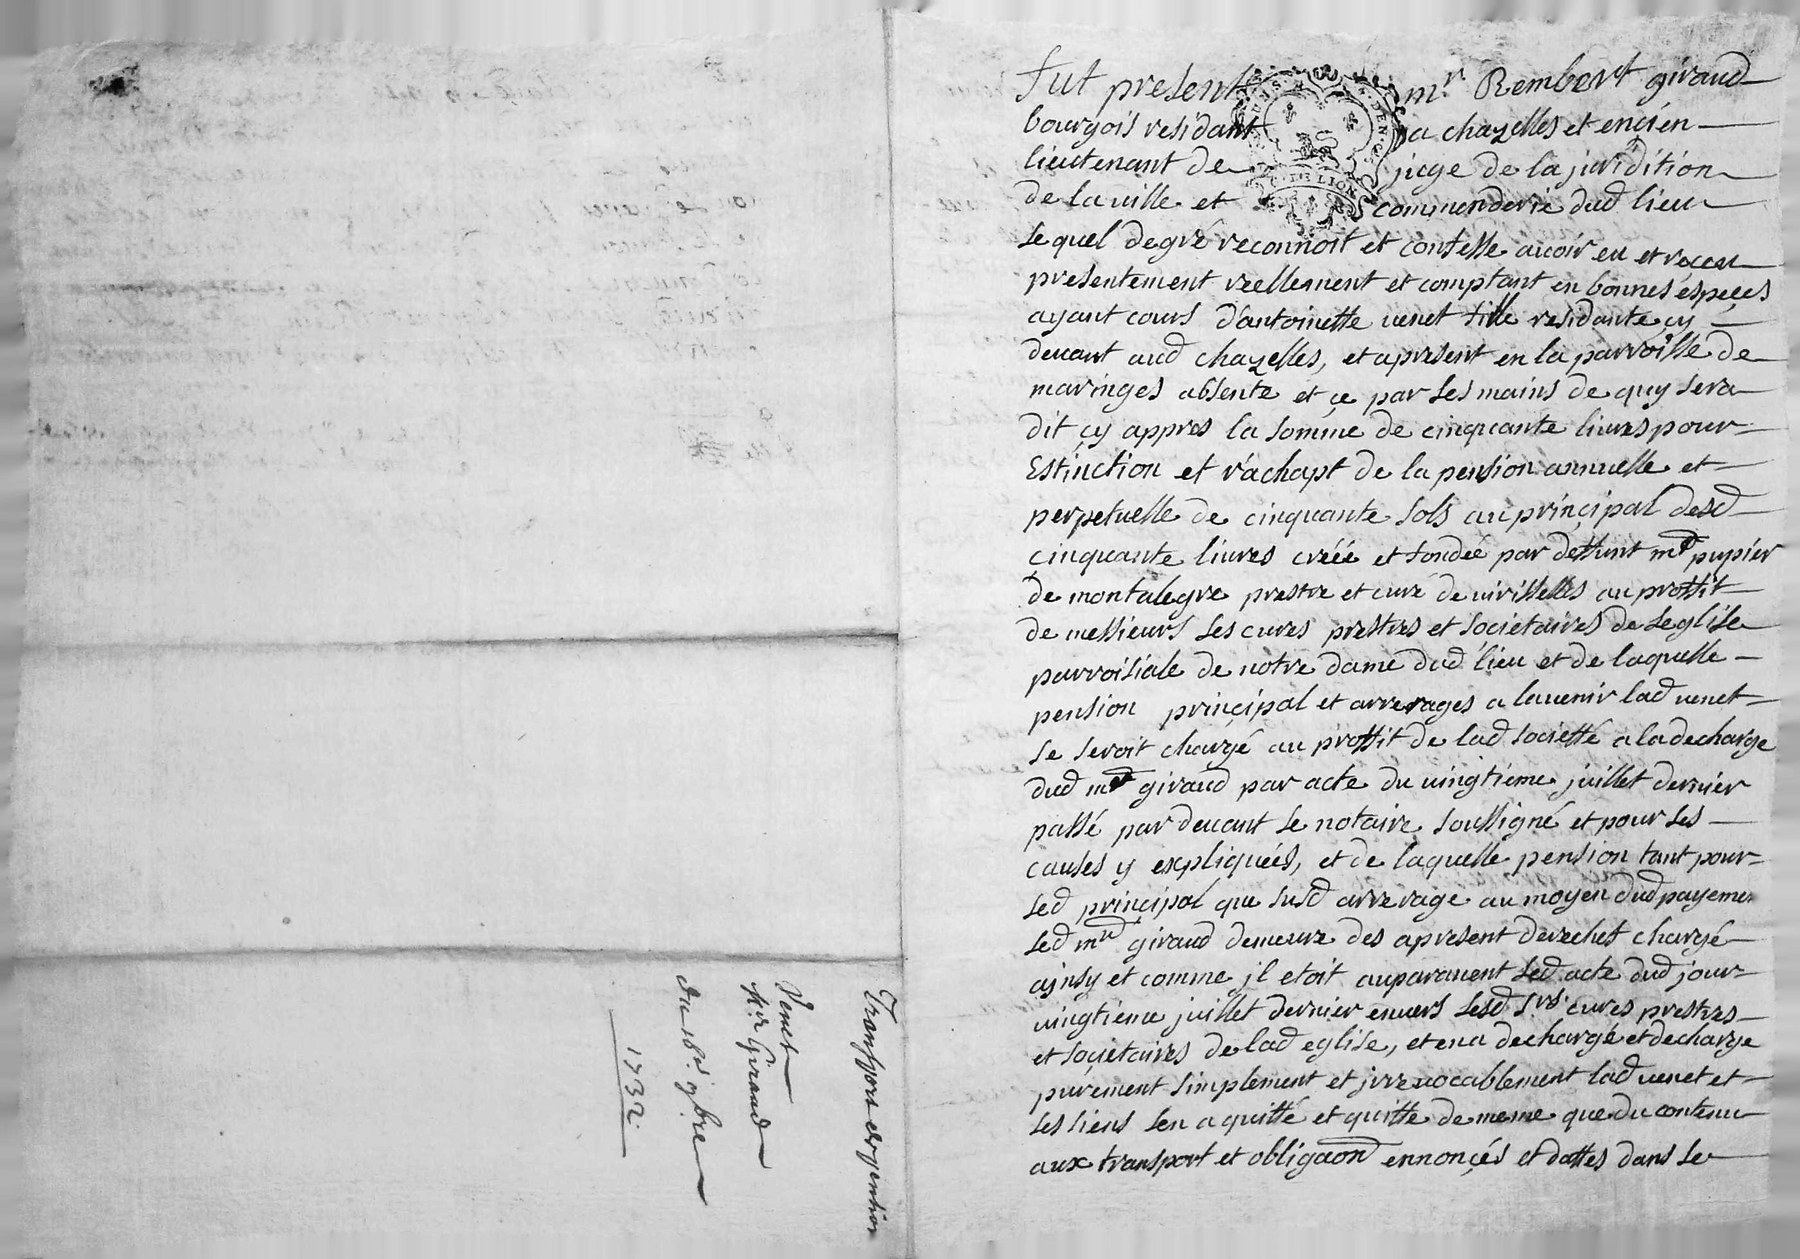 fut present mr Rembert giraud
bourgois residant a chazelles et encien
lieutenant de juge de la juridition
de la ville et commenderie dud lieu
lequel degré reconnoit et confesse auoir eu et receu
presentement reellement et comptant en bonnes espeçes
ayant cours d'antoinette uenet fille residante çy
deuant aud chazelles, et apresent en la parroisse de
maringes absente et çe par les mains de quy sera
dit çy appres la somme de cinquante liures pour
Estinction et rachapt de la pension annuelle et
perpetuelle de cinquante sols au prinçipal desd
çinquante liures créée et fondée par deffunt mre pupier
de montalegre prestre et curé de uirisselles au proffit
de messieurs les cures prestres et societaires de leglise
parroisiale de notre dame dud lieu et de laquelle
pension prinçipal et arrerages a lauenir lad uenet
se seroit chargé au proffit de lad sociétté a la decharge
dud mr giraud par acte du uingtieme juillet dernier
passé par deuant le notaire soussigné et pour les
causes y expliquées, et de laquelle pension tant pour
led prinçipal que susd arrerage au moyen dud payemen
led mre giraud demeure des apresent derechef chargé
ainsy et comme jl etoit auparauent led acte dud jour
uingtieme juillet dernier enuers lesd srs cures prestres
et sociétaires de lad eglise, et en a dechargé et decharge
purement simplement et jrreuocablement lad uenet et
les siens len a quitté et quitte de meme que du contenu
aux transport et obligaon ennonçés et dattes dans le
Transport et pention
Venet
pr Giraud
du 18e 9bre
1732